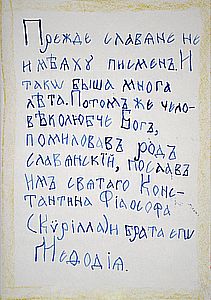 Прежде славяне не
имѣяху писменъ. И
тако быша многа
лѣта. Потомъ же чело-
вѣколюбче Богъ,
помиловавъ родъ
славянскій, пославъ
имъ святаго Конс-
тантина Філософа
(Кѷрилла) и брата его
Меѳодія.